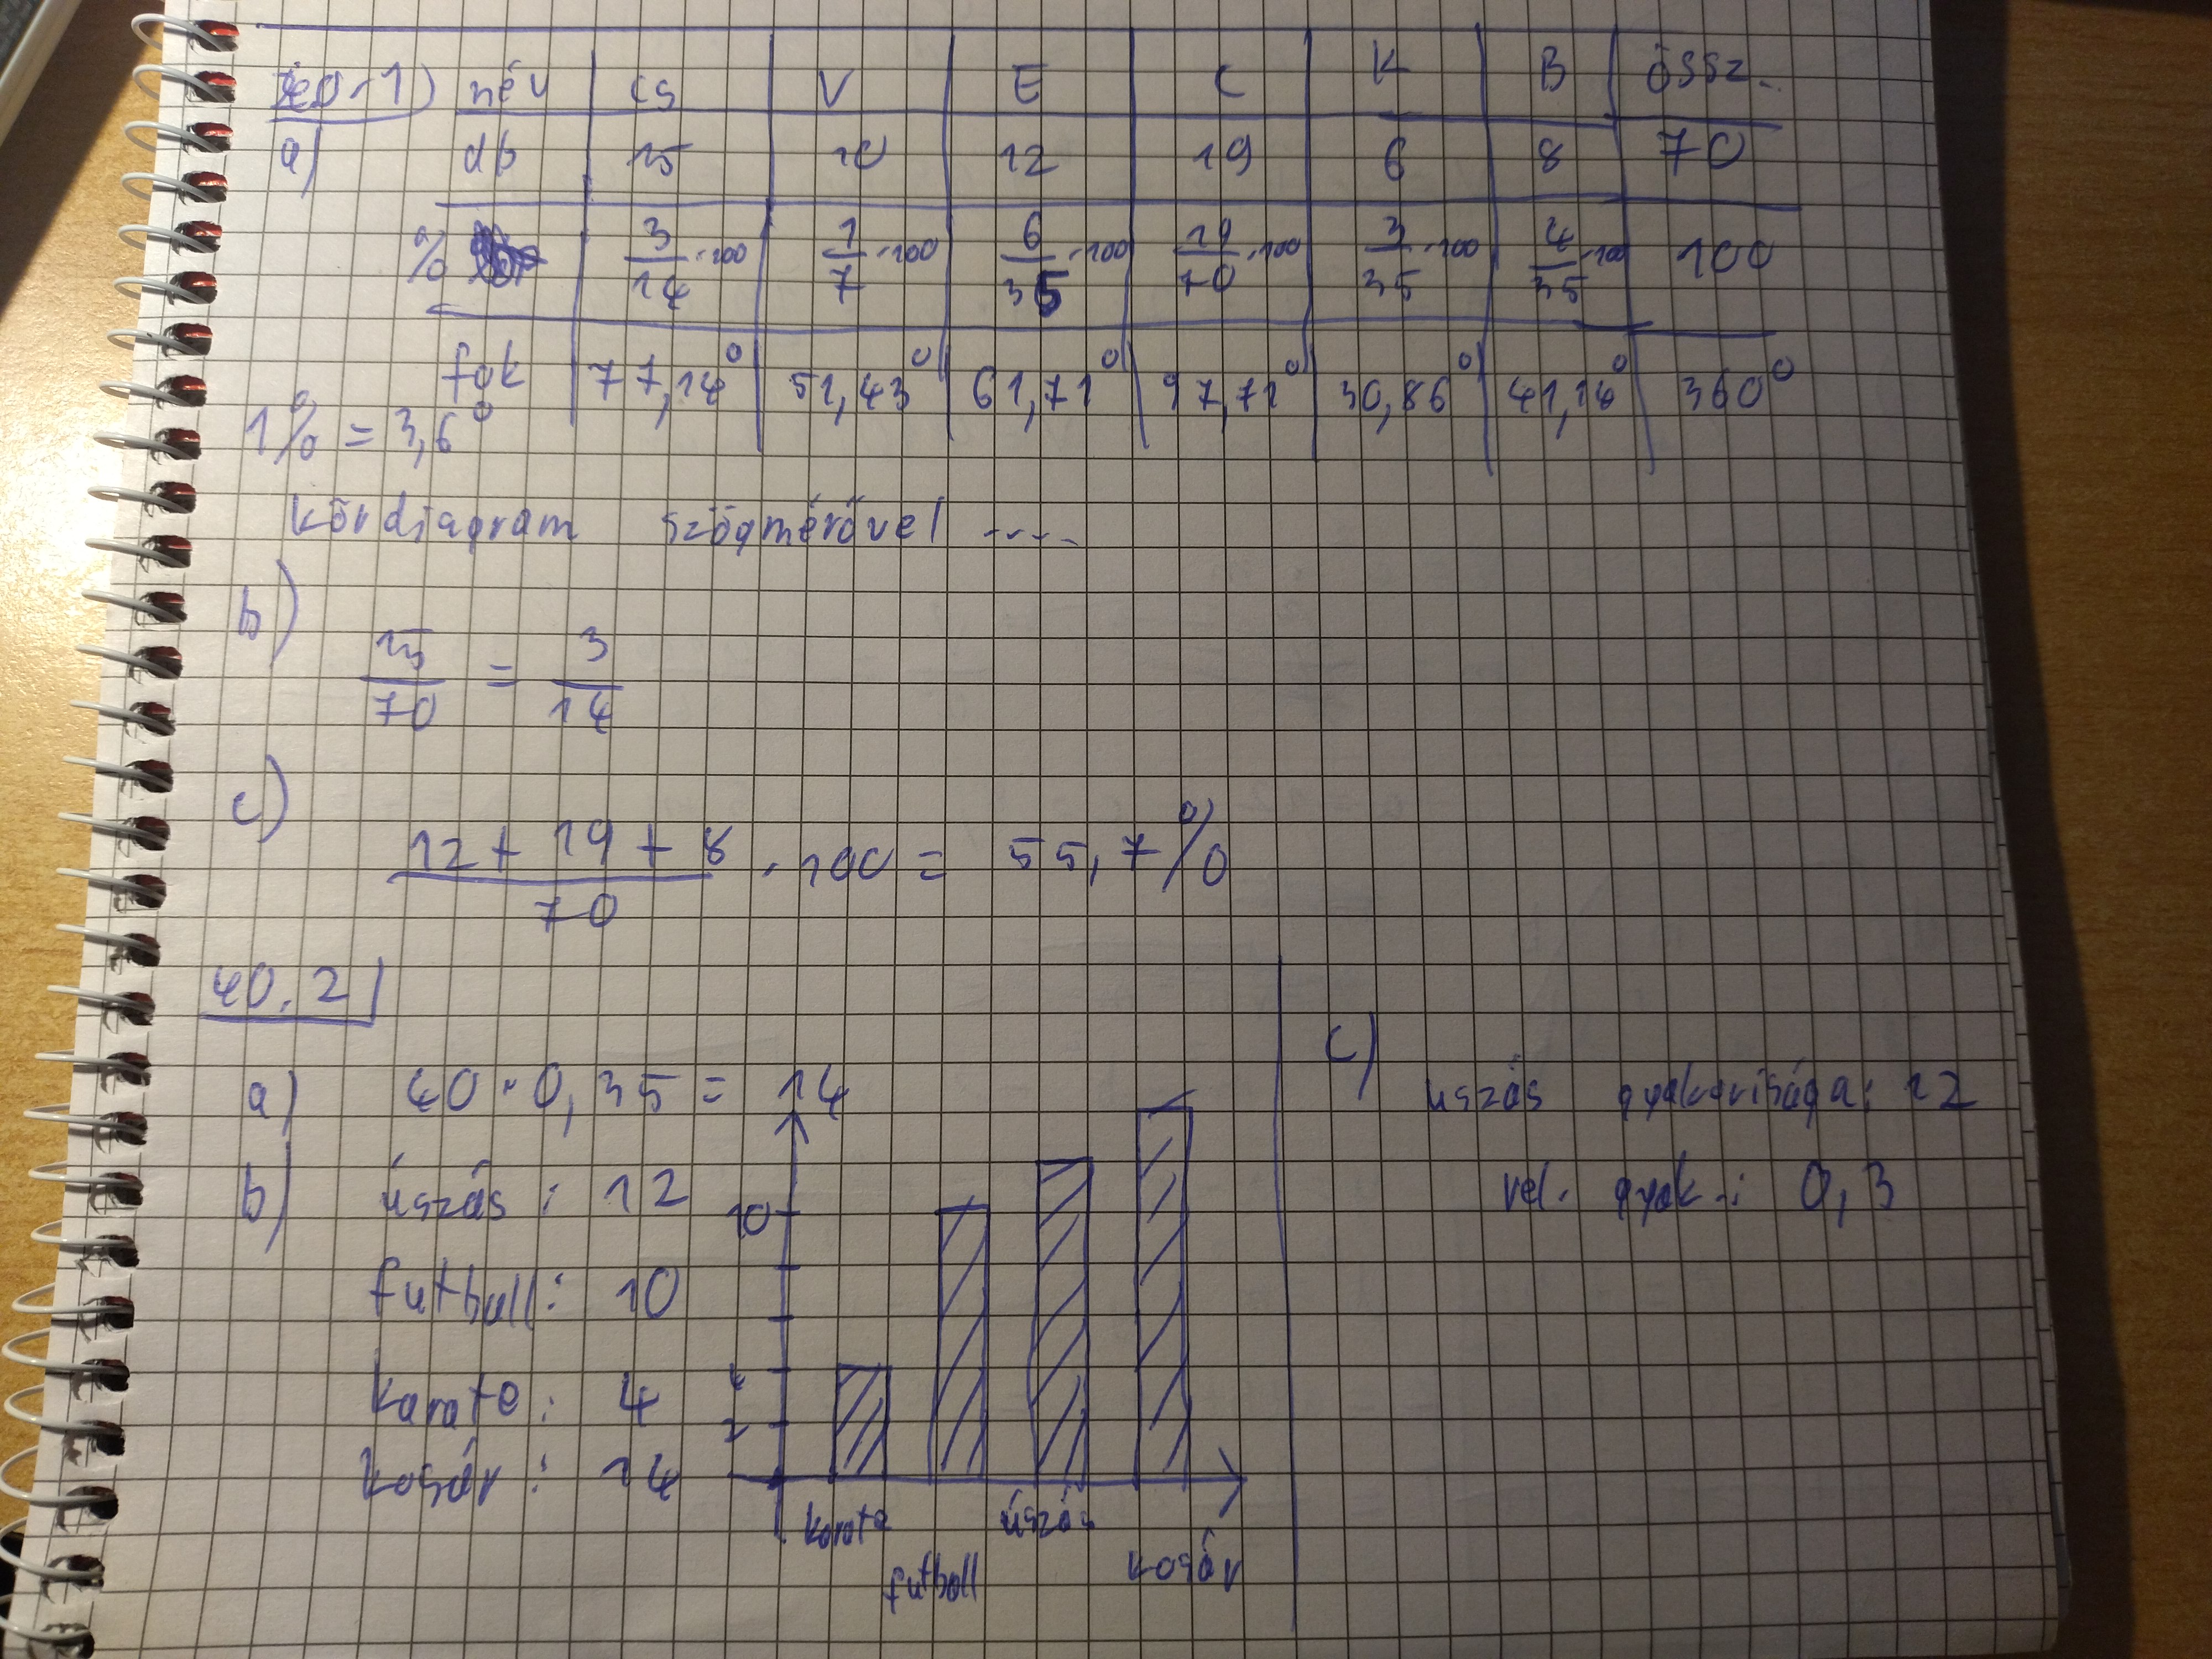 40.1) név cs V E C K B össz.
a) db 15 10 12 19 6 8 70
% 3/14 · 100 1/7 · 100 6/35 · 100 19/70 · 100 3/35 · 100 4/35 · 100 100
fok 77,14° 51,43° 61,71° 97,71° 30,86° 41,14° 360°
1% = 3,6°
kördiagram szögmérővel ....
b)
15/70 = 3/14
c)
(12 + 19 + 8)/70 · 100 = 55,7%
40.2)
a) 40 · 0,35 = 14
b) úszás : 12
futball : 10
karate : 4
kosár : 14
10
4
2
karate
futball
úszás
kosár
c)
úszás gyakorisága: 12
rel. gyak.: 0,3